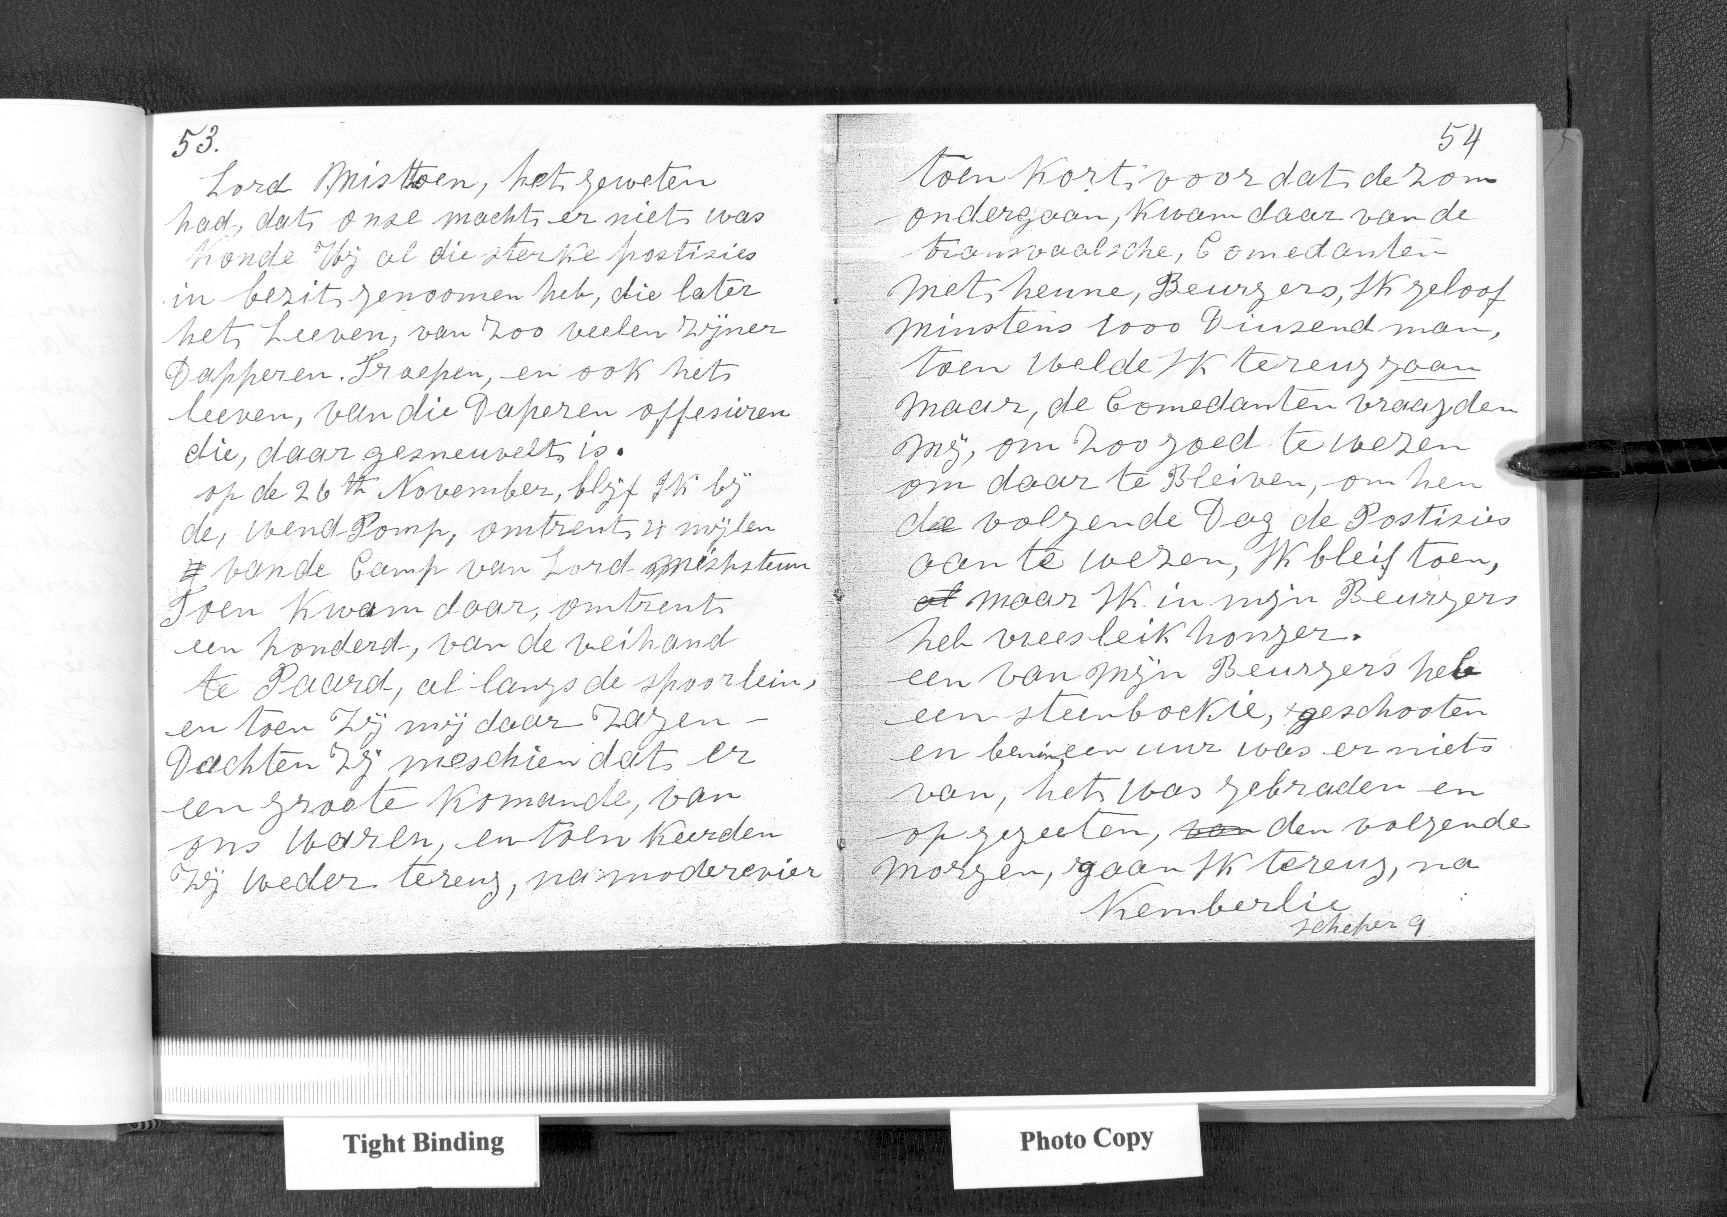 53.
Lord Misttoen, het geweten
had, dat onse macht er niet was
Konde Wij al die sterke postisies
in bezit genoomen heb, die later
het Leeven, van Zoo veelen Zijner
Dapperen. Troepen, en ook het
leeven, van die Daperen offesieren
die, daar gesneuvelt is.
op de 26th November, blijf Ik bij
de, wend Pomp, omtrent 4 mijlen
van de Camp van Lord
Toen Kwam daar, omtrent
een honderd, van de veihand
te Paard, al langs de spoorlein,
en toen Zij mij daar Zagen –
Dachten Zij meschien dat er
een groote Komande, van
ons Waren, en toen Keerden
Zij Weder tereug, na moderevier
54
toen Kort voor dat de zon
ondergaan, Kwam daar van de
transvaalsche, Comedanten
Met heune, Beurgers, Ik geloof
Minstens 1000 Diusend man,
toen Welde Ik tereug gaan
Maar, de Comedanten vraagden
Mij, om Zoo goed te wezen
om daar te Bleiven, om hen
die volgende Dag de Postisies
aan te wezen, Ik bleif toen,
maar Ik in mijn Beurgers
heb vreesleik honger.
een van Mijn Beurgers heb
een steenbockie, geschooten
en een uur was er niets
van, het was gebraden en
op gegeeten, van den volgende
Morgen, gaan Ik tereug, na
Kemberlie
scheper 9
Tight Binding
Photo Copy